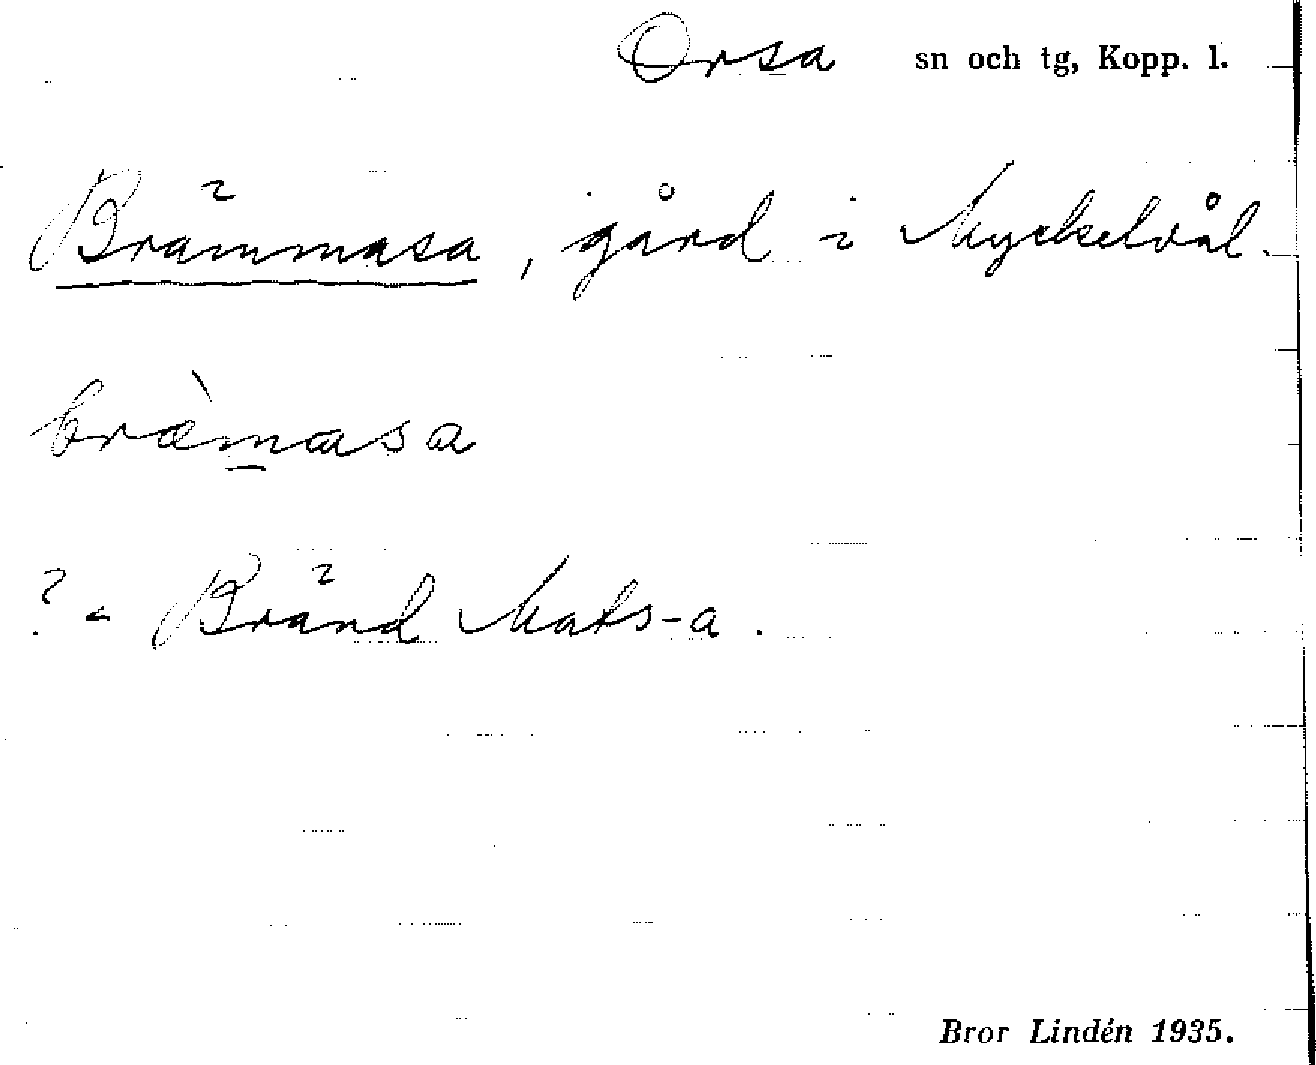 Orsa sn och tg, Kopp. l.
Brämmasa, gård i Myckelvål.
bræ̀masa
? = Bränd Mats-a.
Bror Lindén 1935.